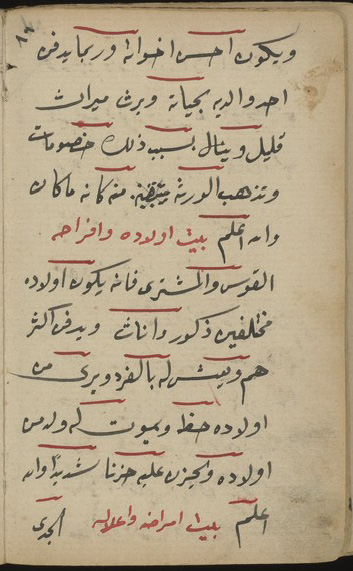 ويكون احسن اخوانه وربما يدفن
احد والديه بحياته ويرث ميراث
قليل وينال بسبب ذلك خصومات
وتذهب الورثة منه كانه ماكان
والله اعلم بيت اولاده وافراحه
القوس والمشترى فانه يكون اولاده
مختلفين ذكور واناث ويدفن اكثر
هم ويعيش له بالفرد ويرى من
اولاده حظ ويموت له ولد من
اولاده ويحزن عليه حزنا شديدا والله
اعلم بيت امراضه واعلاله الجدى